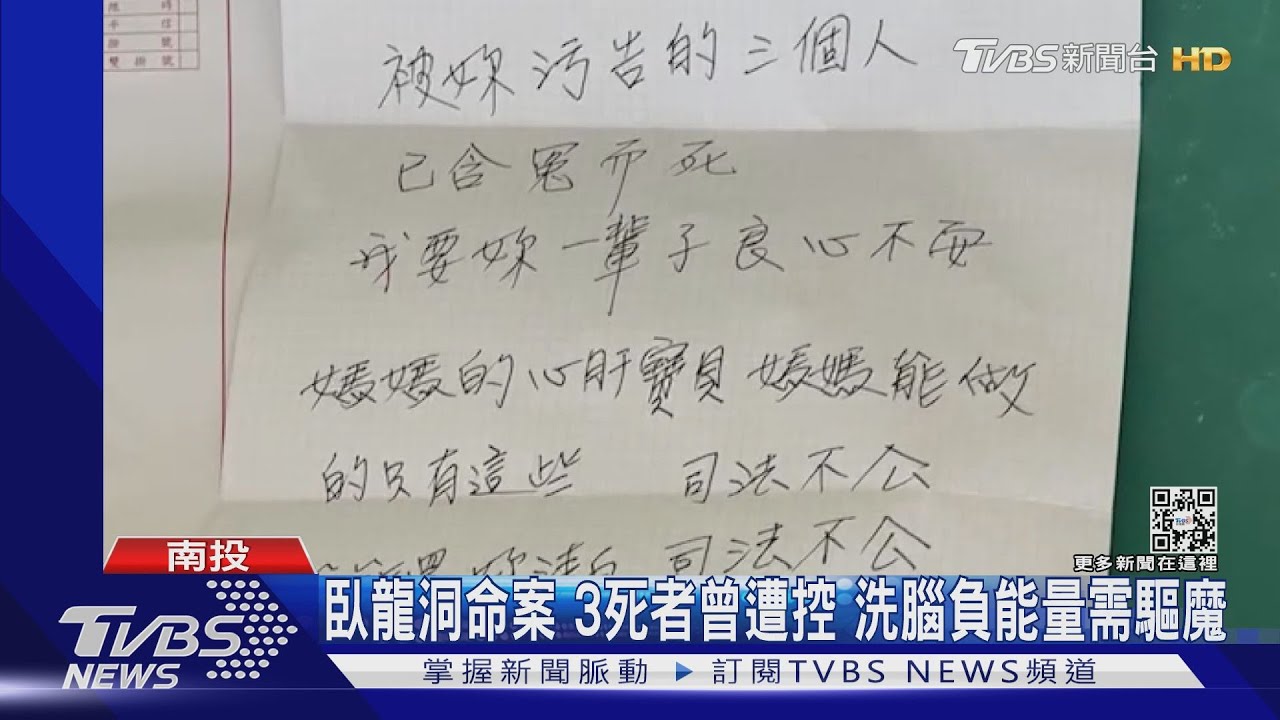 限時
平信
掛號
雙掛號
TVBS新聞台 HD
被妳污告的三個人
已含冤而死
我要妳一輩子良心不安
媽媽的心肝寶貝 媽媽能做
的只有這些 司法不公
妳清白 司法不公
TVBS
更多新聞在這裡
南投
臥龍洞命案 3死者曾遭控 洗腦負能量需驅魔
TVBS NEWS
掌握新聞脈動 ▶ 訂閱TVBS NEWS頻道